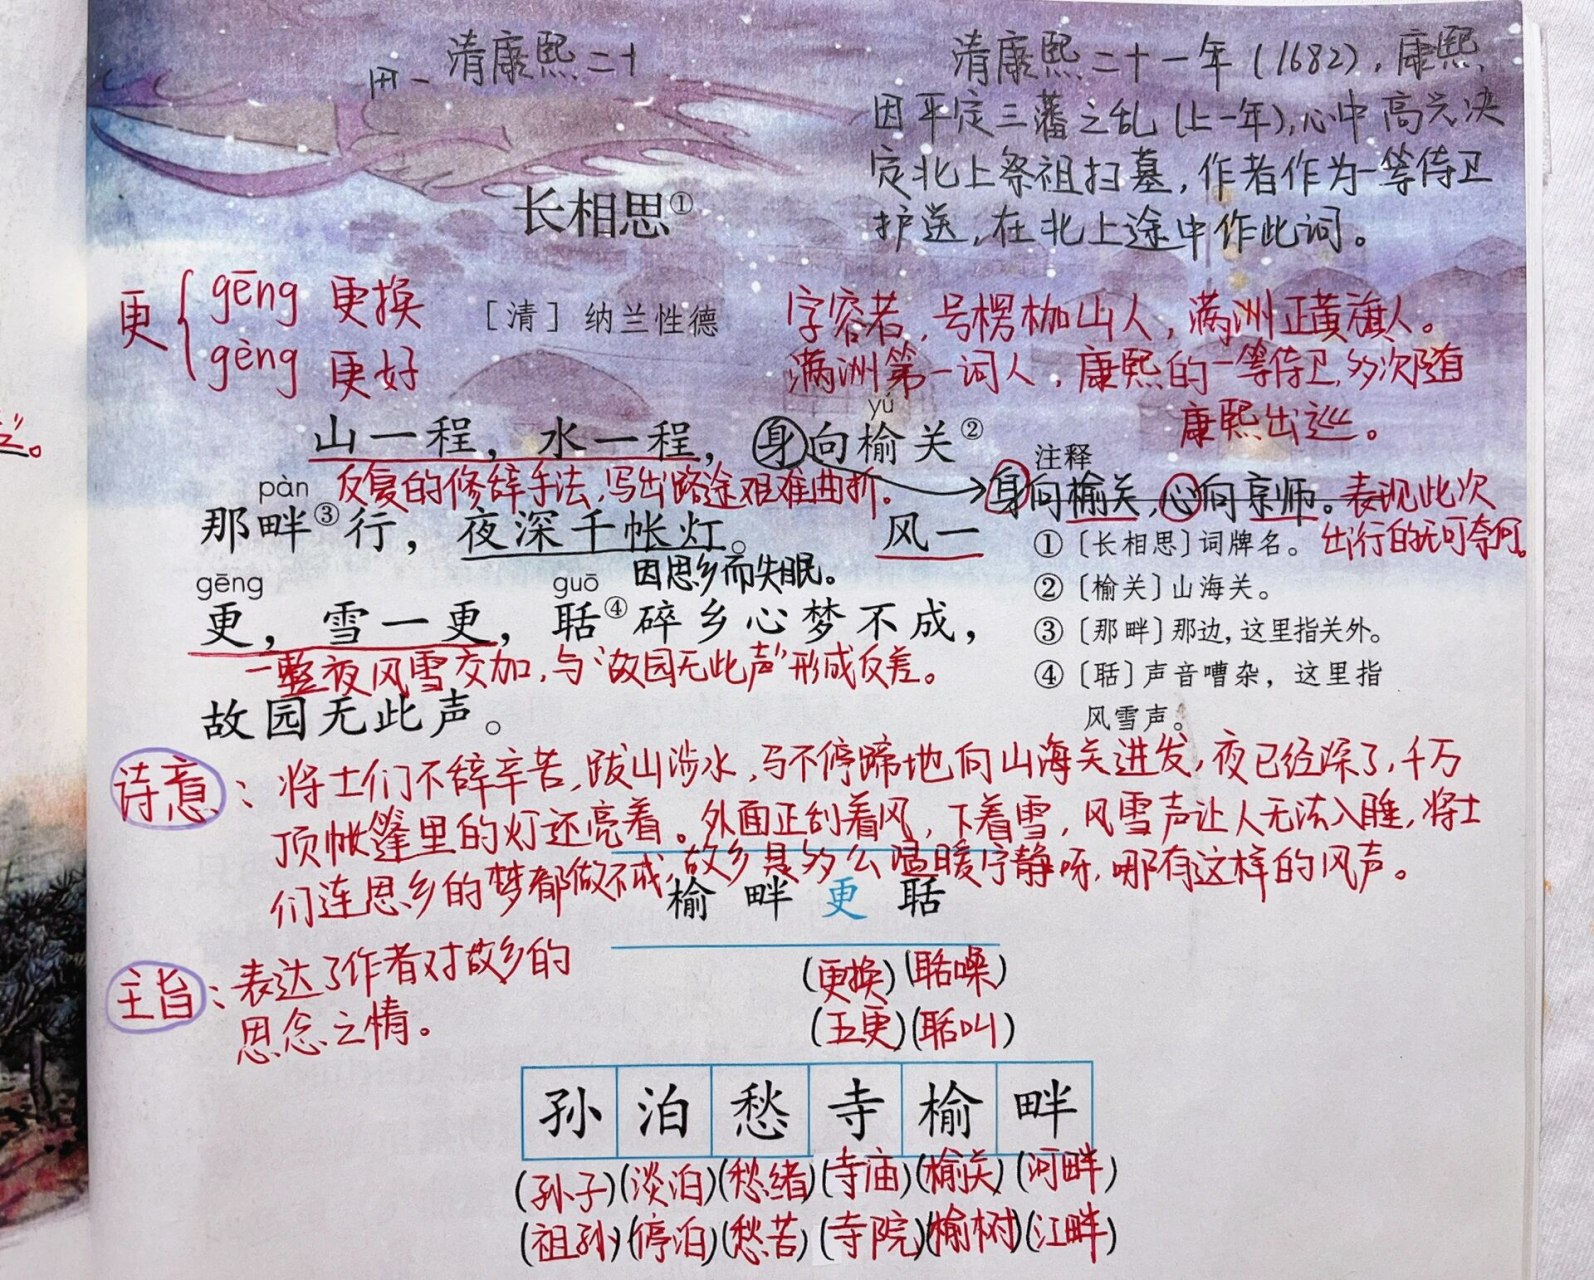 清康熙二十
清康熙二十一年(1682),康熙
因平定三藩之乱(上一年),心中高兴决
定北上祭祖扫墓,作者作为一等侍卫
护送,在北上途中作此词。
长相思①
[清] 纳兰性德
更
gēng 更换
gèng 更好
字容若,号楞枷山人,满洲正黄旗人。
满洲第一词人,康熙的一等侍卫,多次随
康熙出巡。
yú
山一程,水一程,身向榆关②
反复的修辞手法,写出路途艰难曲折。
身向榆关,心向京师。表现此次
出行的无可奈何。
pàn
那畔③行,夜深千帐灯。 风一
因思乡而失眠。
gēng guō
更,雪一更,聒④碎乡心梦不成,
一整夜风雪交加,与“故园无此声”形成反差。
故园无此声。
注释
①〔长相思〕词牌名。
②〔榆关〕山海关。
③〔那畔〕那边,这里指关外。
④〔聒〕声音嘈杂,这里指
风雪声。
诗意:将士们不辞辛苦,跋山涉水,马不停蹄地向山海关进发,夜已经深了,千万
顶帐篷里的灯还亮着。外面正刮着风,下着雪,风雪声让人无法入睡,将士
们连思乡的梦都做不成,故乡是多么温暖宁静呀,哪有这样的风声。
榆 畔 更 聒
(更换)(聒噪)
(五更)(聒叫)
主旨:表达了作者对故乡的
思念之情。
孙 泊 愁 寺 榆 畔
(孙子)(淡泊)(愁绪)(寺庙)(榆关)(河畔)
(祖孙)(停泊)(愁苦)(寺院)(榆树)(江畔)